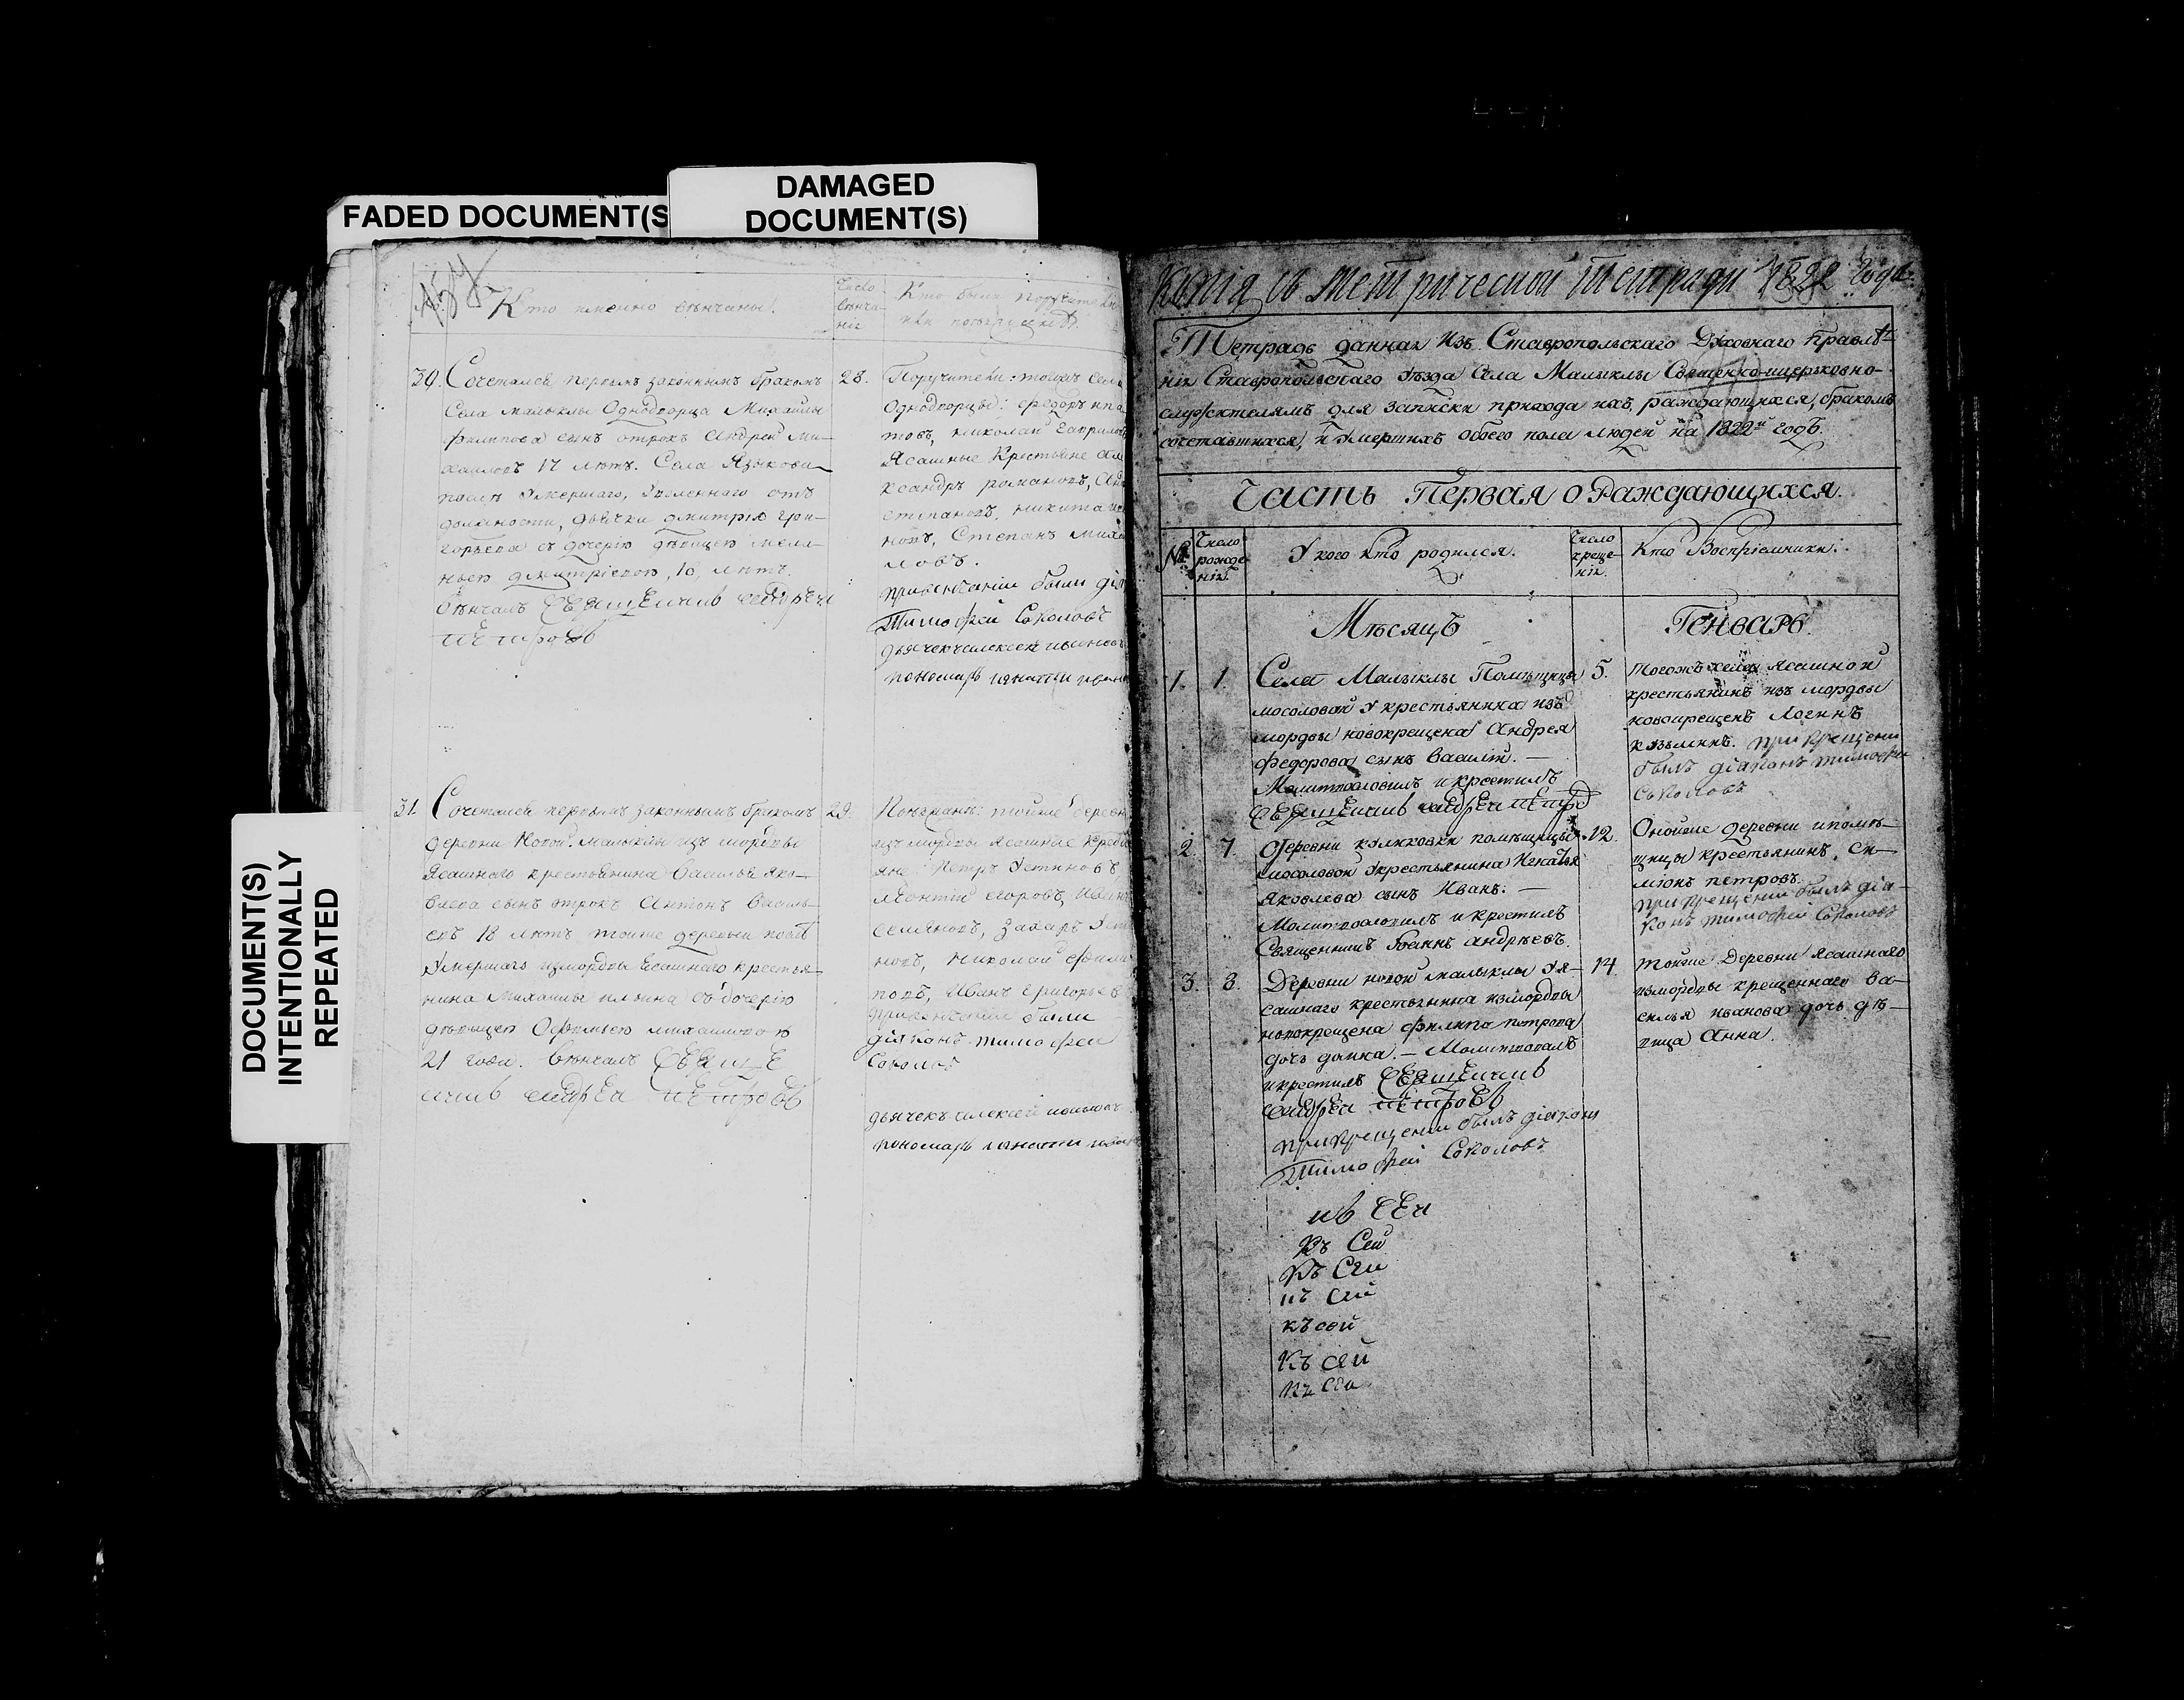 FADED DOCUMENT(S
DAMAGED
DOCUMENT(S)
DOCUMENT(S)
INTENTIONALLY
REPEATED
Кто именно венчаны.
Число
венча-
нія
Кто были поручите
30. Сочетался первымъ законнымъ бракомъ
Села малыклы Однодворца Михайлы
филипова сынъ отрокъ Андрей ми-
хаиловъ 17 лѣтъ. Села Языкова
послѣ Умершаго, Уволеннаго отъ
должности, дьячка дмитрія гри-
горьева съ дочерію дѣвицею мела-
ньею дмитріевою,
вѣнчалъ свящЕнникъ андрЕи
пЕтровъ
28.
Поручители: тогожъ Села
Однодворцы: федоръ ипа
товъ, николай гаврилов
Ясашные Крестьяне Але
ксандръ романовъ,
степановъ, никита
новъ, Степанъ миха
ловъ.
привенчаніи были діа
Тимофей Соколовъ
дьячекъ алексей ивановъ
пономарь игнатій иван
31. Сочетался первымъ законнымъ бракомъ
деревни Новой малыклы изъ мордвы
Ясашнаго крестьянина Василья Яко-
влева сынъ отрокъ Антонъ Василь-
евъ 18 лѣтъ тойже деревни послѣ
Умершаго измордвы Ясашнаго крестья-
нина Михайлы ильина съ дочерію
дѣвицею Офимьею михаиловою
21 года. Вѣнчалъ СвящЕ
нникъ андрЕи пЕтровъ
29.
Поезжане: тойже деревни
изъ мордвы Ясашные Кресть
яне: Петръ Устиновъ,
леонтій егоровъ, Иван
семеновъ, Захаръ
новъ, николай фили
повъ, Иванъ григорьевъ
привенчаніи были
діаконъ тимофеи
Соколовъ
дьячекъ алексей ивановъ
пономарь игнатии иван
Копія съ метрической тетради 1822 года.
Тетрадь данная изъ Ставропольскаго Духовнаго Правле-
нія Ставропольскаго Уѣзда Села Малыклы Священно-церковно-
служителямъ для записки прихода ихъ, раждающихся, бракомъ
сочетавшихся, и Умершихъ обоего пола людей на 1822й годъ.
Часть Первая о Раждающихся.
№
Число
рожде-
нія.
У кого кто родился.
Число
креще-
нія.
Кто Воспріемники.
Мѣсяцъ
Генварь.
1. 1. Села Малыклы Помѣщицы
мосоловой У крестьянина изъ
мордвы новокрещена Андрея
федорова сынъ Василій.
Молитвословилъ и крестилъ
СвящЕнникъ андрЕи пЕтр
5.
Тогожъ села Ясашной
крестьянинъ изъ мордвы
новокрещенъ Логинъ
козьминъ. при крещени
былъ діаконъ тимофеи
Соколовъ
2. 7. Деревни куликовки помѣщицы
мосоловой Укрестьянина Игнатья
Яковлева сынъ Иванъ:
Молитвословилъ и крестилъ
Священникъ Иоаннъ андрѣевъ.
12.
Онойже деревни ипомѣ-
щицы крестьянинъ, Си-
міонъ петровъ.
при крещени былъ діа-
конъ тимофей Соколовъ
3. 8. Деревни новой малыклы Уя-
сашнаго крестьянина измордвы
новокрещена филипа петрова
дочь домна. Молитвовалъ
и крестилъ СвящЕнникъ
андрЕи пЕтровъ
при крещении былъ діаконъ
Тимофей Соколовъ
14.
Тойже Деревни Ясашнаго
измордвы крещеннаго Ва-
силья иванова дочь дѣ-
вица Анна.
къ сей
къ сей
къ сей
къ сей
къ сей
къ сей